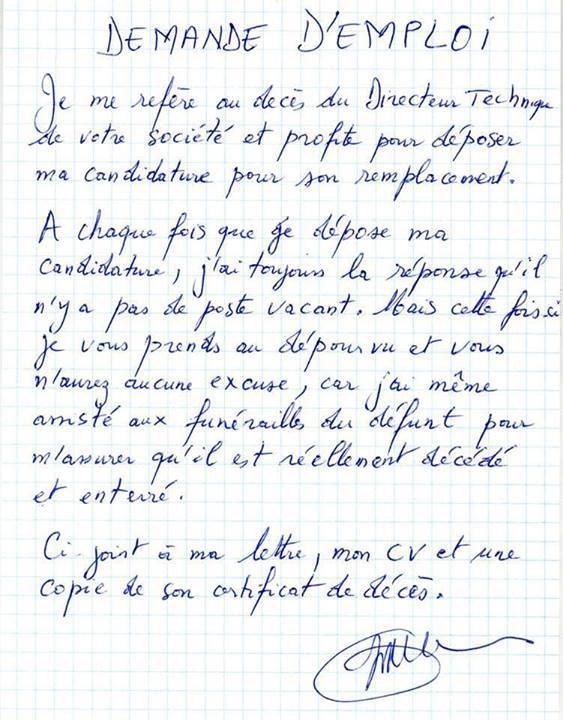 DEMANDE D'EMPLOI
Je me refère au decès du Directeur Technique
de votre société et profite pour déposer
ma candidature pour son remplacement.
A chaque fois que je dépose ma
candidature, j'ai toujours la réponse qu'il
n'y a pas de poste vacant. Mais cette fois si
je vous prends au dépourvu et vous
n'aurez aucune excuse, car j'ai même
assisté aux funérailles du défunt pour
m'assurer qu'il est réellement décédé
et enterré.
Ci-joint à ma lettre, mon CV et une
copie de son certificat de décès.